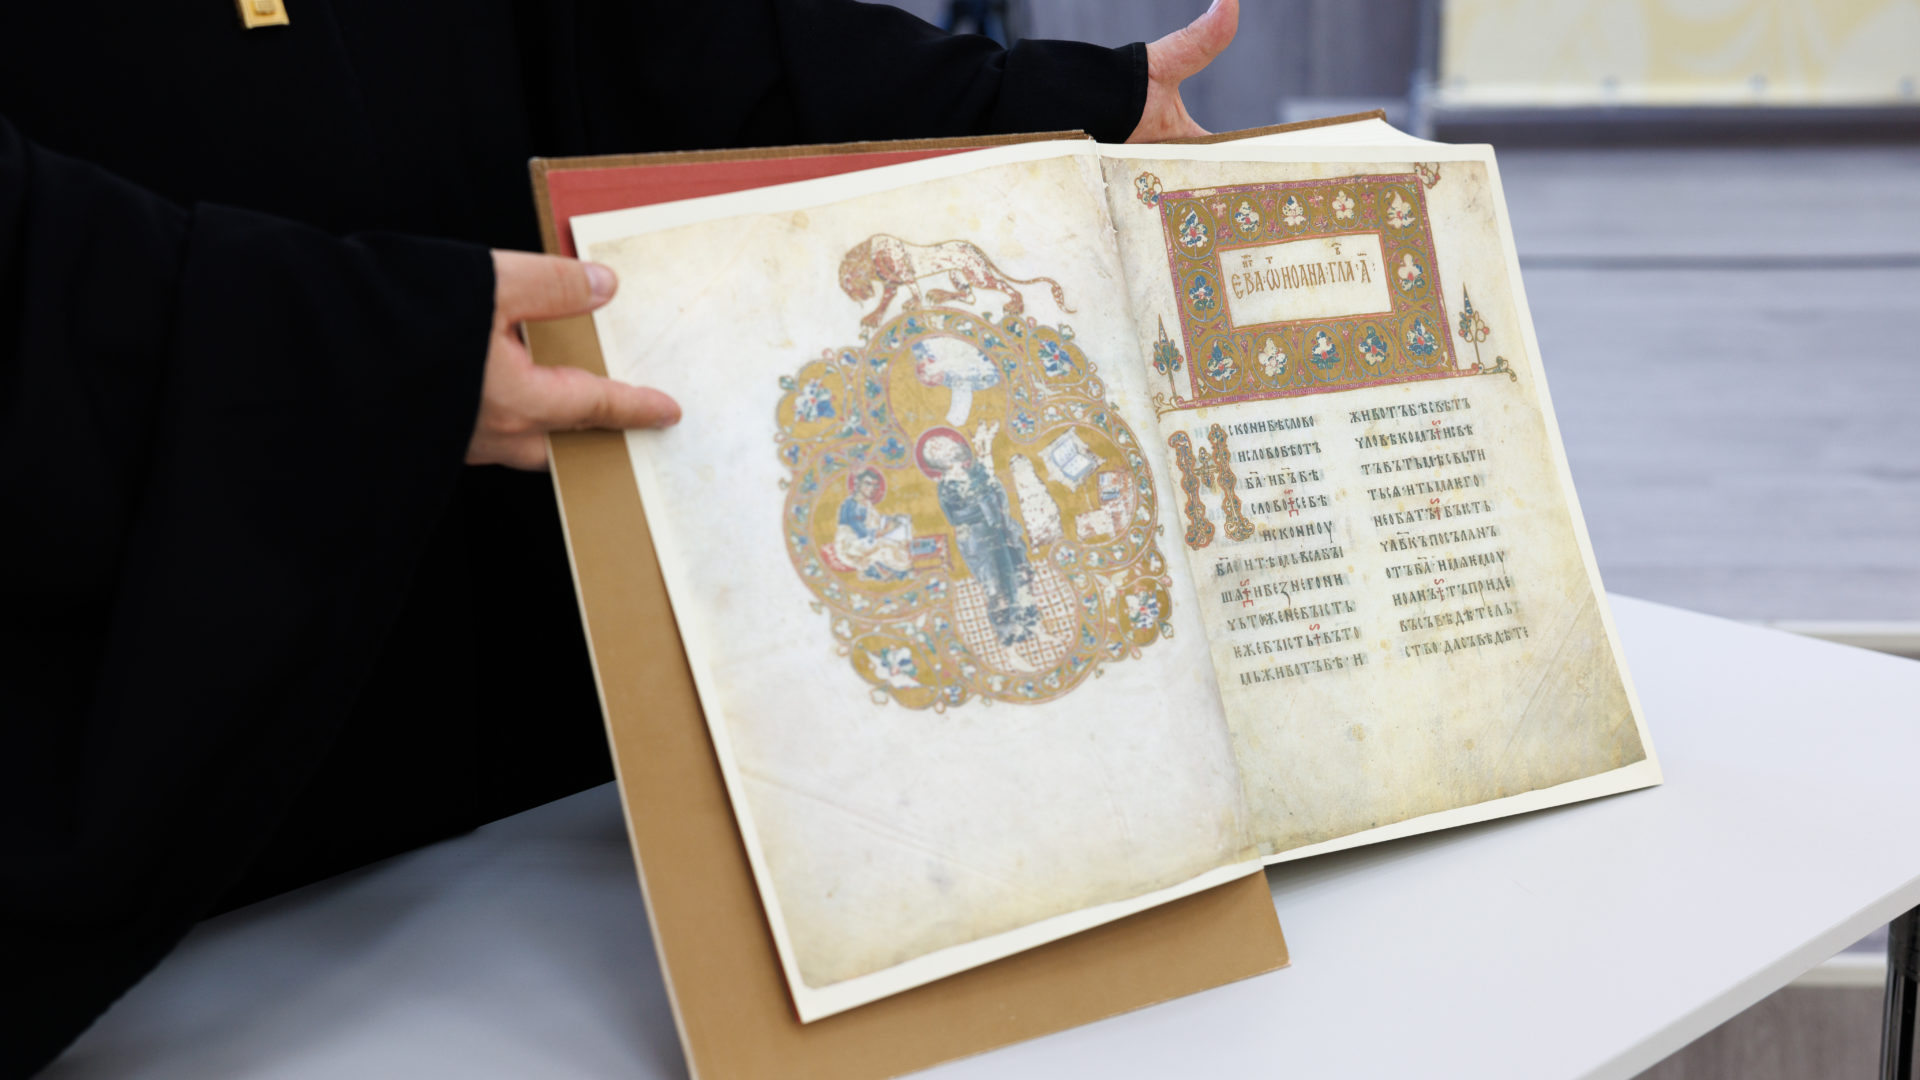 ЕВА҃Г·Ѿ·ИОАНА·ГЛА҃В·А҃·
ИСКОНИБѢСЛОВО
ИСЛОВОБѢОТЪ
БА҃·ИБ҃ЪБѢ
СЛОВО+СЕБѢ
ИСКОНИОУ
БА҃·ИТѢМЬВСѦБЫ
ШѦ+ИБЕЗНЕГОНИ
ЧЬТОЖЕНЕБЫСТЬ·
ѤЖЕБЫСТЬ+ВЪТО
МЬЖИВОТЪБѢ·И
ЖИВОТЪБѢСВѢТЪ
ЧЛОВѢКОМЪ+ИСВѢ
ТЪВЪТЬМѢСВЬТИ
ТЬСѦ·ИТЬМАѤГО
НЕОБѦТЪ+БЫСТЬ
ЧЛ҃ВКЪПОСЪЛАНЪ
ОТЪБА҃·ИМѦѤМОУ
ИОАНЪ+ТЪПРИДЕ
ВЪСЪВѢДѢТЕЛЬ
СТВО·ДАСЪВѢДѢТЕ